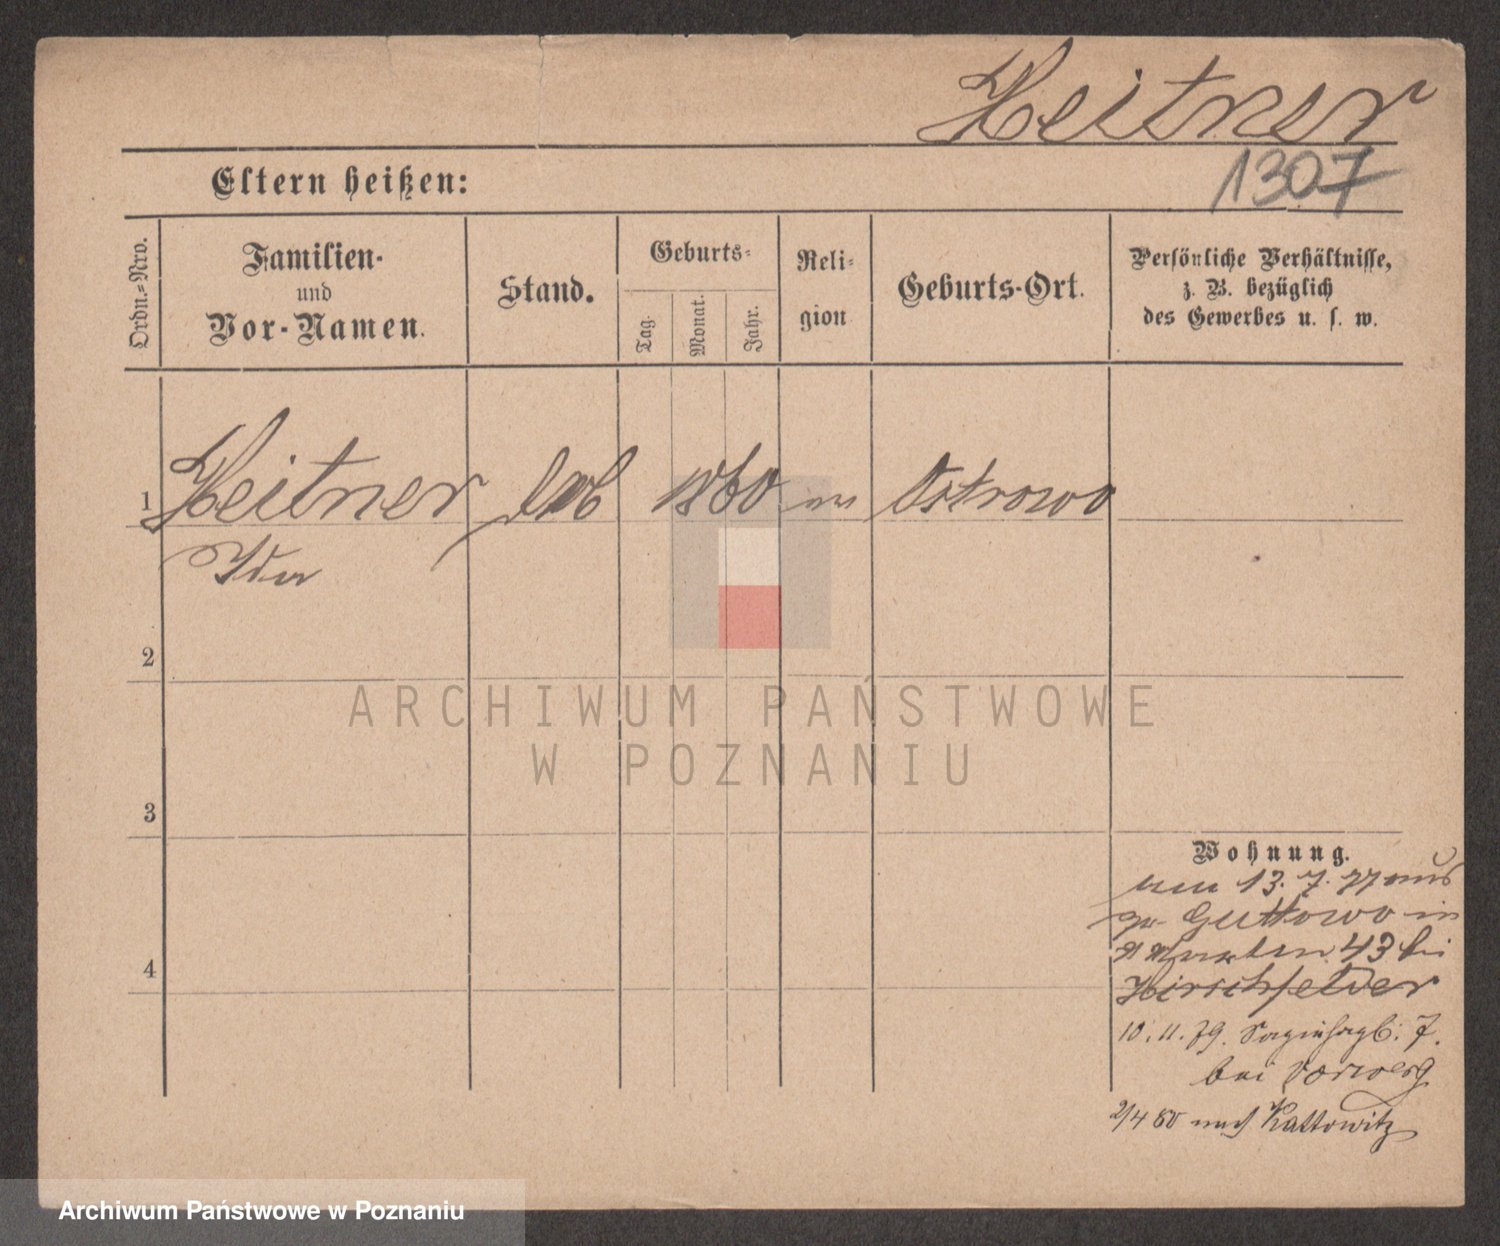 Heitner
1307
Eltern heißen:
Ordn.-Nro.
Familien-
und
Vor-Namen.
Stand.
Geburts-
Tag.
Monat.
Jahr.
Reli-
gion
Geburts-Ort.
Persönliche Verhältnisse,
z. B. bezüglich
des Gewerbes u. s. w.
1 Heitner 1860 Ostrowo
Ida
2
ARCHIWUM PAŃSTWOWE
W POZNANIU
3
Wohnung.
13. 7. 77 aus
Guttowo in
43 bei
Hirschfelder
10. 11. 79. 7.
bei Vorwerg
2/4 80 nach Kattowitz
4
Archiwum Państwowe w Poznaniu